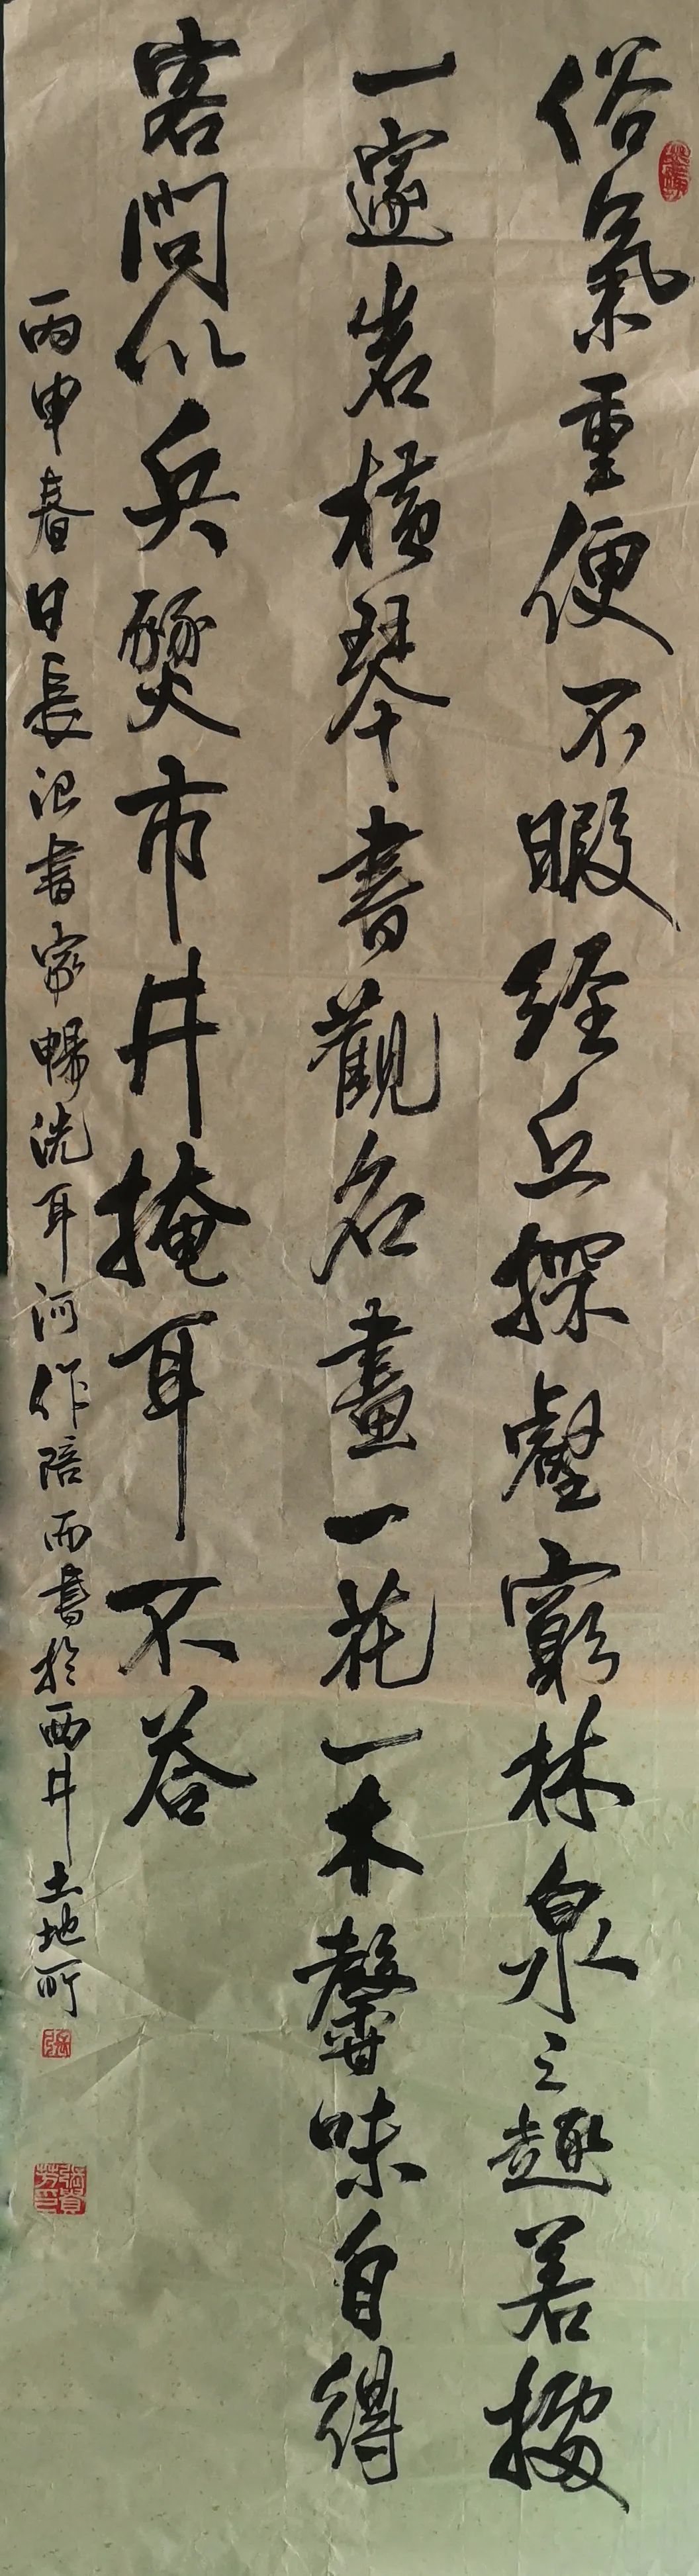 俗氣重便不暇經丘探壑窮林泉之趣若據
一邃岩橫琴書觀名畫一花一木馨味自得
客問以兵燹市井掩耳不答
丙申春日長沮書家暢洗耳河作陪而書於西井土地所